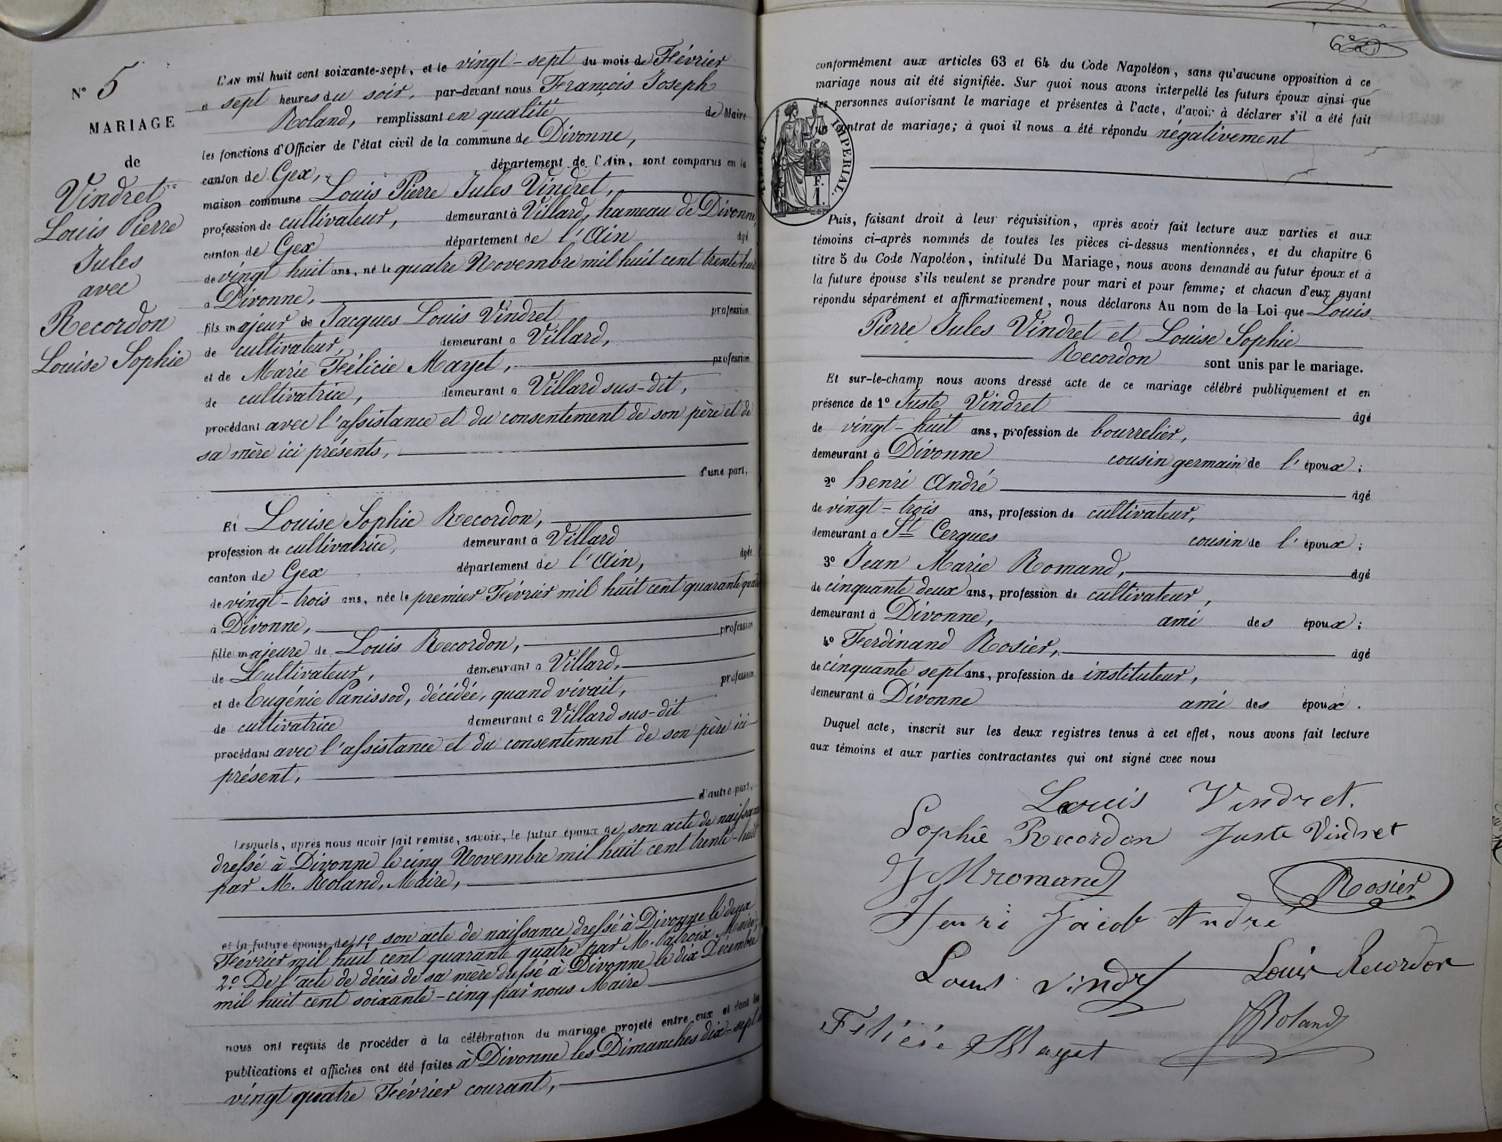 N° 5
MARIAGE
de
Vindret
Louis Pierre
Jules
avec
Recordon
Louise Sophie
L'AN mil huit cent soixante-sept, et le vingt-sept du mois de Février
a sept heures du soir, par-devant nous François Joseph
Roland, remplissant en qualité de Maire
les fonctions d'Officier de l'état civil de la commune de Divonne,
canton de Gex, département de l'Ain, sont comparus en la
maison commune Louis Pierre Jules Vindret,
profession de cultivateur, demeurant à Villard, hameau de Divonne
canton de Gex département de l'Ain âgé
de vingt huit ans, né le quatre Novembre mil huit cent trente huit
à Divonne,
fils majeur de Jacques Louis Vindret profession
de cultivateur, demeurant a Villard,
et de Marie Félicie Mayet, profession
de cultivatrice, demeurant à Villard sus-dit,
procédant avec l'assistance et du consentement de son père et de
sa mère ici présents,
d'une part,
Et Louise Sophie Recordon,
profession de cultivatrice, demeurant à Villard
canton de Gex département de l'Ain, âgée
de vingt-trois ans, née le premier Février mil huit cent quarante quatre
à Divonne,
fille majeure de Louis Recordon, profession
de Cultivateur, demeurant a Villard,
et de Eugénie Panissod, décédée, quand vivait, profession
de cultivatrice demeurant a Villard sus-dit
procédant avec l'assistance et du consentement de son père ici
présent,
d'autre part,
Lesquels, après nous avoir fait remise, savoir, le futur époux de son acte de naissance
dressé à Divonne le cinq Novembre mil huit cent trente-huit
par M. Roland, Maire,
et la future épouse de 1° son acte de naissance dressé à Divonne le deux
Février mil huit cent quarante quatre par M. Latroix, Maire,
2° De l'acte de décès de sa mère dressé à Divonne le dix Décembre
mil huit cent soixante-cinq par nous Maire
nous ont requis de procéder à la célébration du mariage projeté entre eux et dont les
publications et affiches ont été faites à Divonne les Dimanches dix-sept et
vingt quatre Février courant,
conformément aux articles 63 et 64 du Code Napoléon, sans qu'aucune opposition à ce
mariage nous ait été signifiée. Sur quoi nous avons interpellé les futurs époux ainsi que
les personnes autorisant le mariage et présentes à l'acte, d'avoir à déclarer s'il a été fait
contrat de mariage; à quoi il nous a été répondu négativement
TIMBRE IMPERIAL
F.
1.
Puis, faisant droit à leur réquisition, après avoir fait lecture aux parties et aux
témoins ci-après nommés de toutes les pièces ci-dessus mentionnées, et du chapitre 6
titre 5 du Code Napoléon, intitulé Du Mariage, nous avons demandé au futur époux et à
la future épouse s'ils veulent se prendre pour mari et pour femme; et chacun d'eux ayant
répondu séparément et affirmativement, nous déclarons Au nom de la Loi que Louis
Pierre Jules Vindret et Louise Sophie
Recordon sont unis par le mariage.
Et sur-le-champ nous avons dressé acte de ce mariage célébré publiquement et en
présence de 1° Juste Vindret âgé
de vingt-huit ans, profession de bourrelier,
demeurant à Divonne cousin germain de l'époux;
2° henri André âgé
de vingt-trois ans, profession de cultivateur,
demeurant a St Cergues cousin de l'époux;
3° Jean Marie Romand, âgé
de cinquante deux ans, profession de cultivateur,
demeurant à Divonne, ami des époux;
4° Ferdinand Rosier, âgé
de cinquante sept ans, profession de instituteur,
demeurant à Divonne ami des époux.
Duquel acte, inscrit sur les deux registres tenus à cet effet, nous avons fait lecture
aux témoins et aux parties contractantes qui ont signé avec nous
Louis Vindret.
Sophie Recordon Juste Vindret
J M romand Rosier
Henri Jacob André
Louis Vindret Louis Recordon
Féliciè Mayet Roland